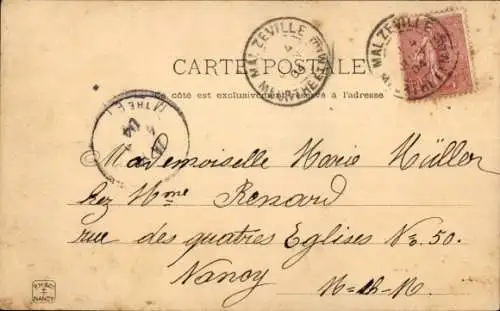 MALZEVILLE
MEURTHE ET M
04
MALZEVILLE
CARTE POSTALE
Ce côté est exclusivement réservé à l'adresse
THE E
04
Mademoiselle Marie Müller
chez Mme Renard
rue des quatres Eglises No. 50.
Nancy
NANCY